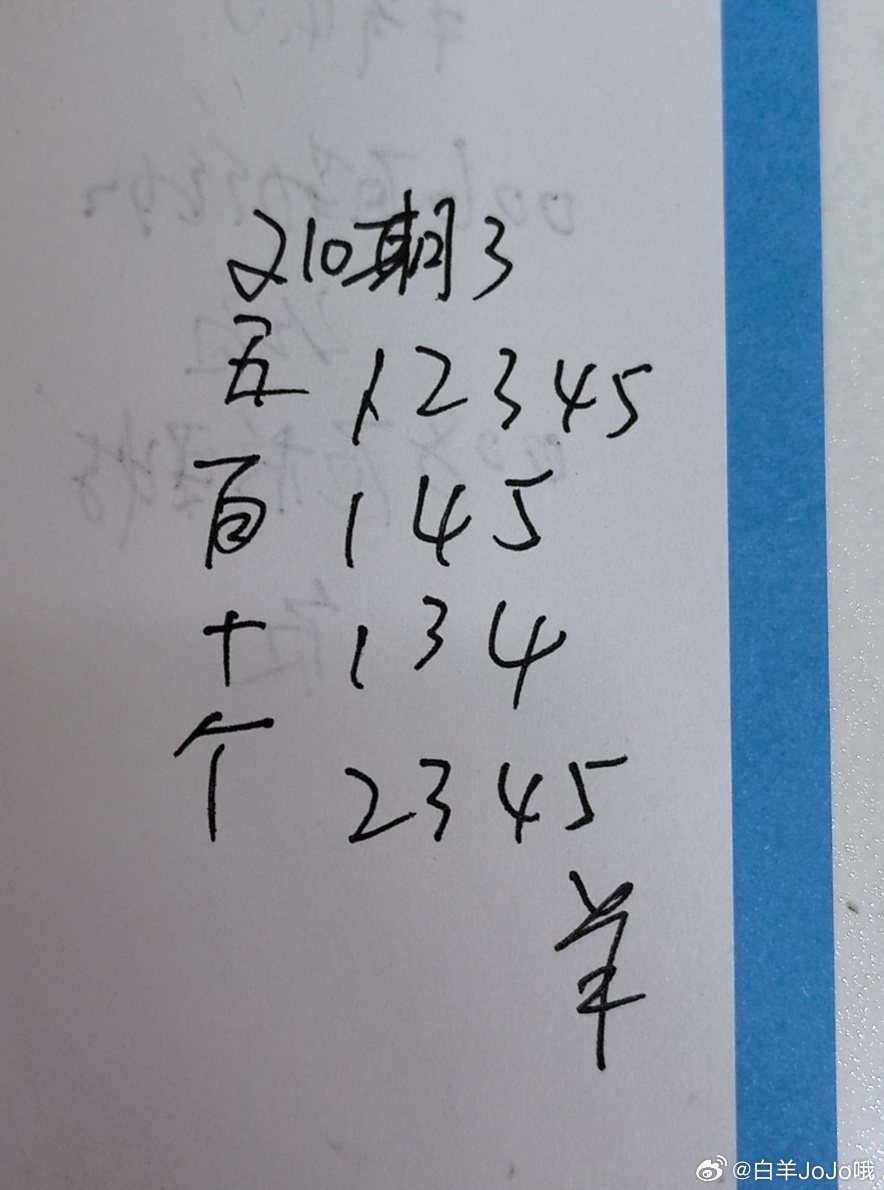 210期3
五 12345
百 145
十 134
个 2345
羊
@白羊JoJo哦